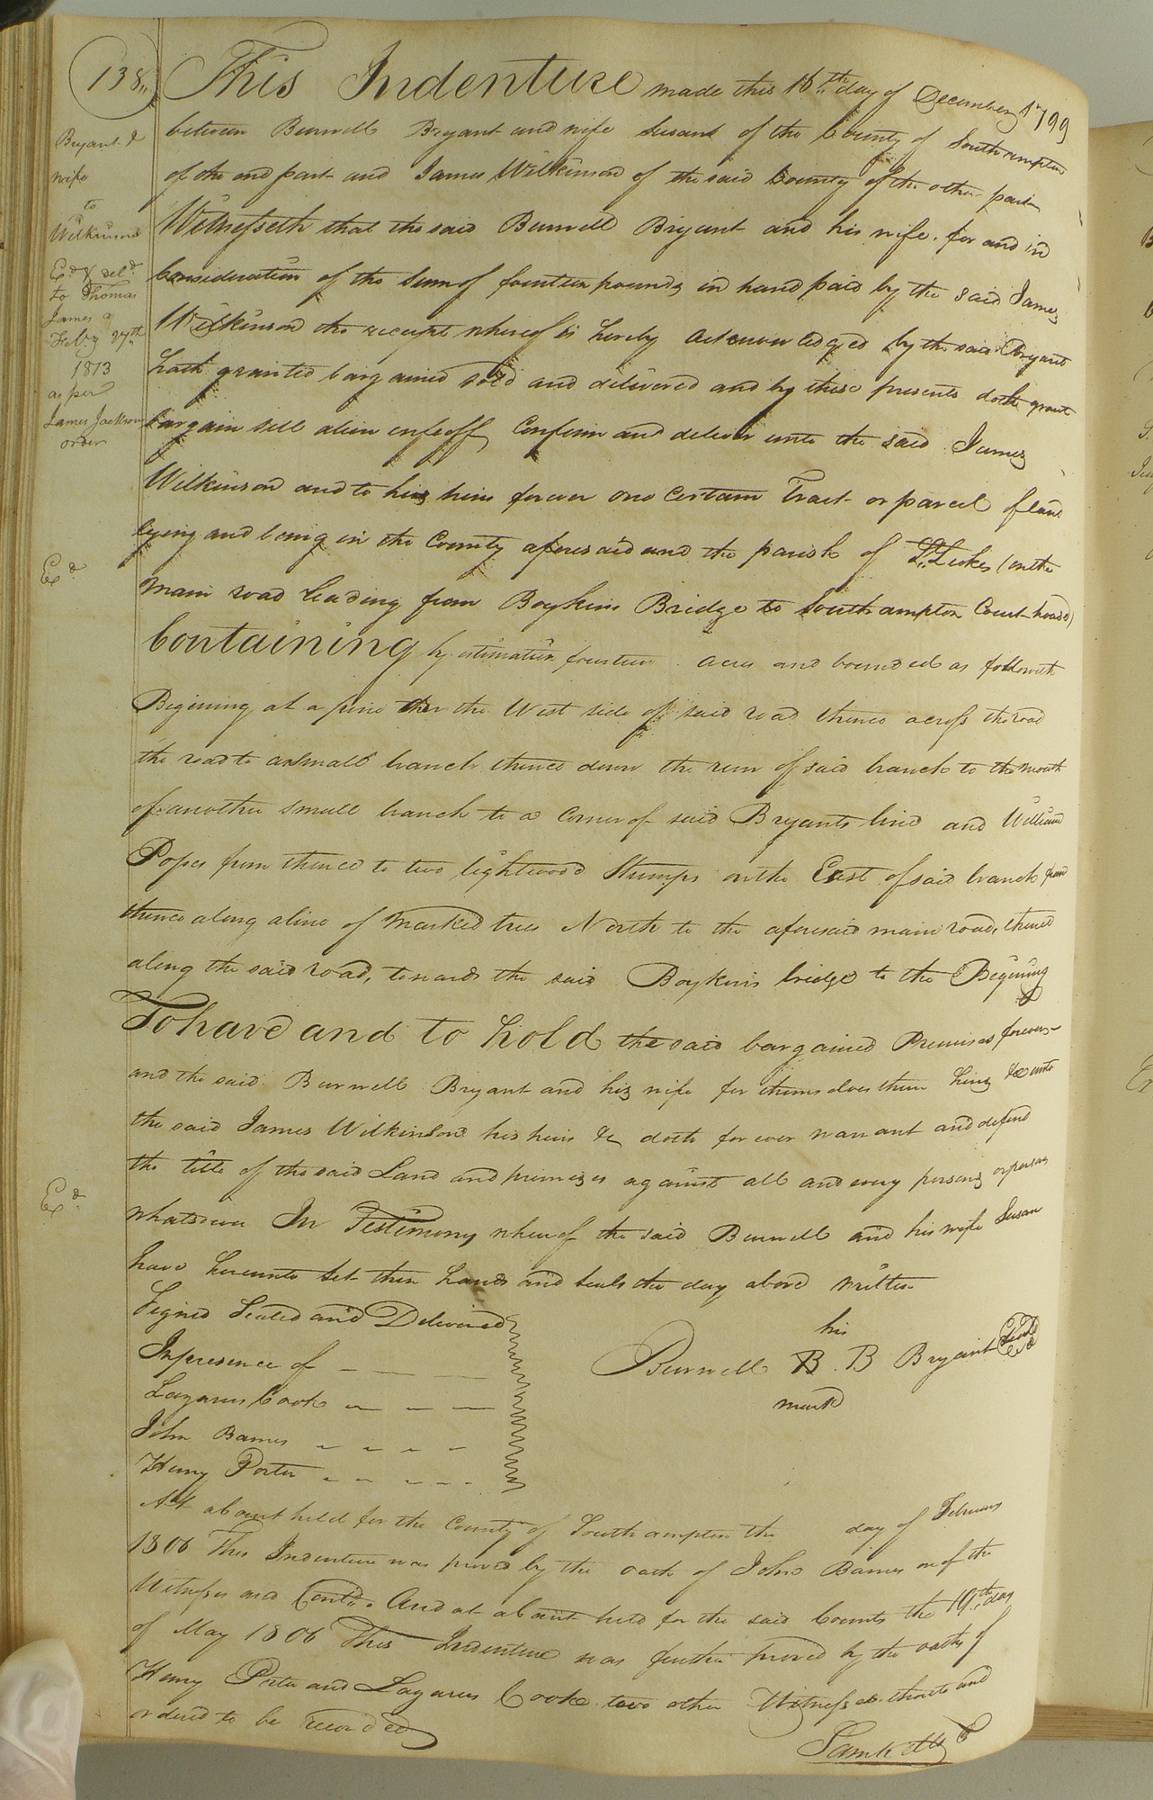 138
This Indenture made this 16th day of December 1799
between Burwell Bryant and wife Susand of the County of Southampton
of the one part and James Wilkinson of the said County of the other part
Witnesseth that the said Burwell Bryant and his wife for and in
Consideration of the Sum of fourteen pounds in hand paid by the said James
Wilkinson the receipt whereof is hereby acknowledged by the said Bryant
hath granted bargained sold and delivered and by these presents doth grant
bargain sell alien enfeoff Confirm and deliver unto the said James
Wilkinson and to his heirs forever one Certain Tract or parcel of land
lying and being in the County aforesaid and the parish of St. Lukes (on the
main road leading from Boykins Bridge to Southampton Court house)
Containing by estimation fourteen acres and bounded as followeth
Begining at a pine on the West side of said road thence across the road
the road to a small branch thence down the run of said branch to the mouth
of another small branch to a Corner of said Bryants line and William
Popes from thence to two lightwood Stumps on the East of said branch from
thence along a line of marked trees North to the aforesaid main road, thence
along the said road, towards the said Boykins bridge to the Begining
To have and to hold the said bargained Premises forever
and the said Burwell Bryant and his wife for themselves their heirs &c unto
the said James Wilkinson his heirs &c doth forever warrant and defend
the title of the said Land and premises against all and every persons or persons
whatsoever In Testimony whereof the said Burwell and his wife Susan
have hereunto set their hands and seals the day above written
Signed Sealed and Delivered
In presence of
Lazarus Cook
John Barnes
Henry Porter
his
Burwell B. B Bryant Seal
mark
At a Court held for the County of Southampton the day of February
1806 This Indenture was proved by the oath of John Barnes one of the
Witnesses and Contd. And at a Court held for the said County the 19th day
of May 1806 This Indenture was further proved by the oaths of
Henry Porter and Lazarus Cook two other Witnesses thereto and
ordered to be recorded
Bryant &
wife
to
Wilkinson
Exd & deld
to Thomas
James
Feby 27th
1813
as per
James Jackson
order
Exd
Exd